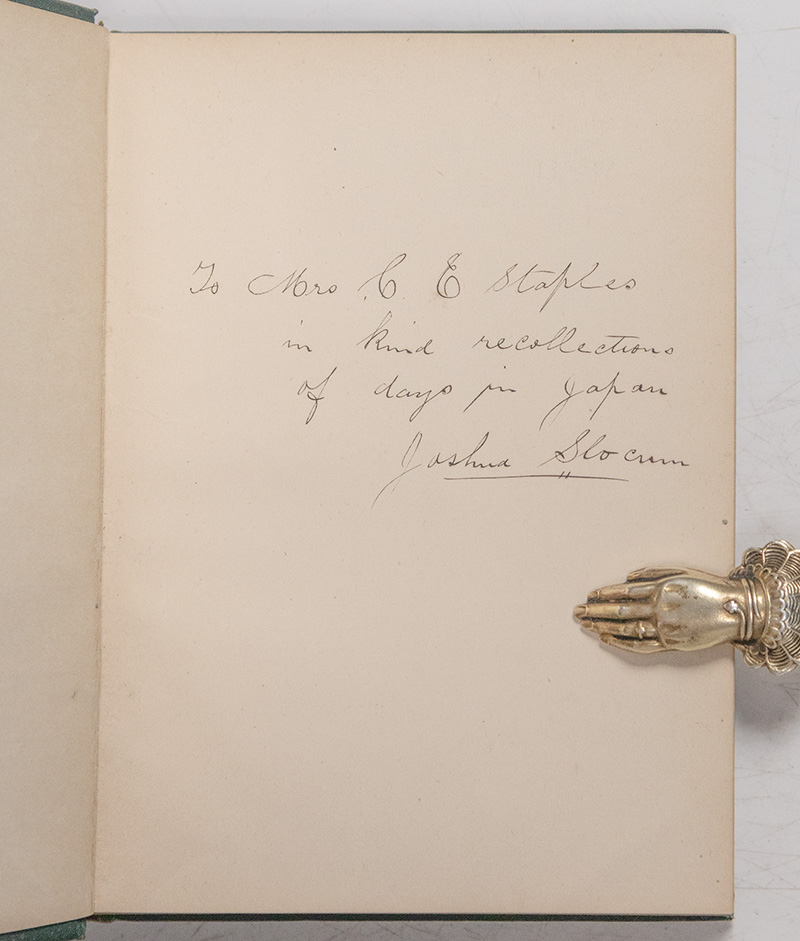 To Mrs C E Staples
in kind recollections
of days in Japan
Joshua Slocum